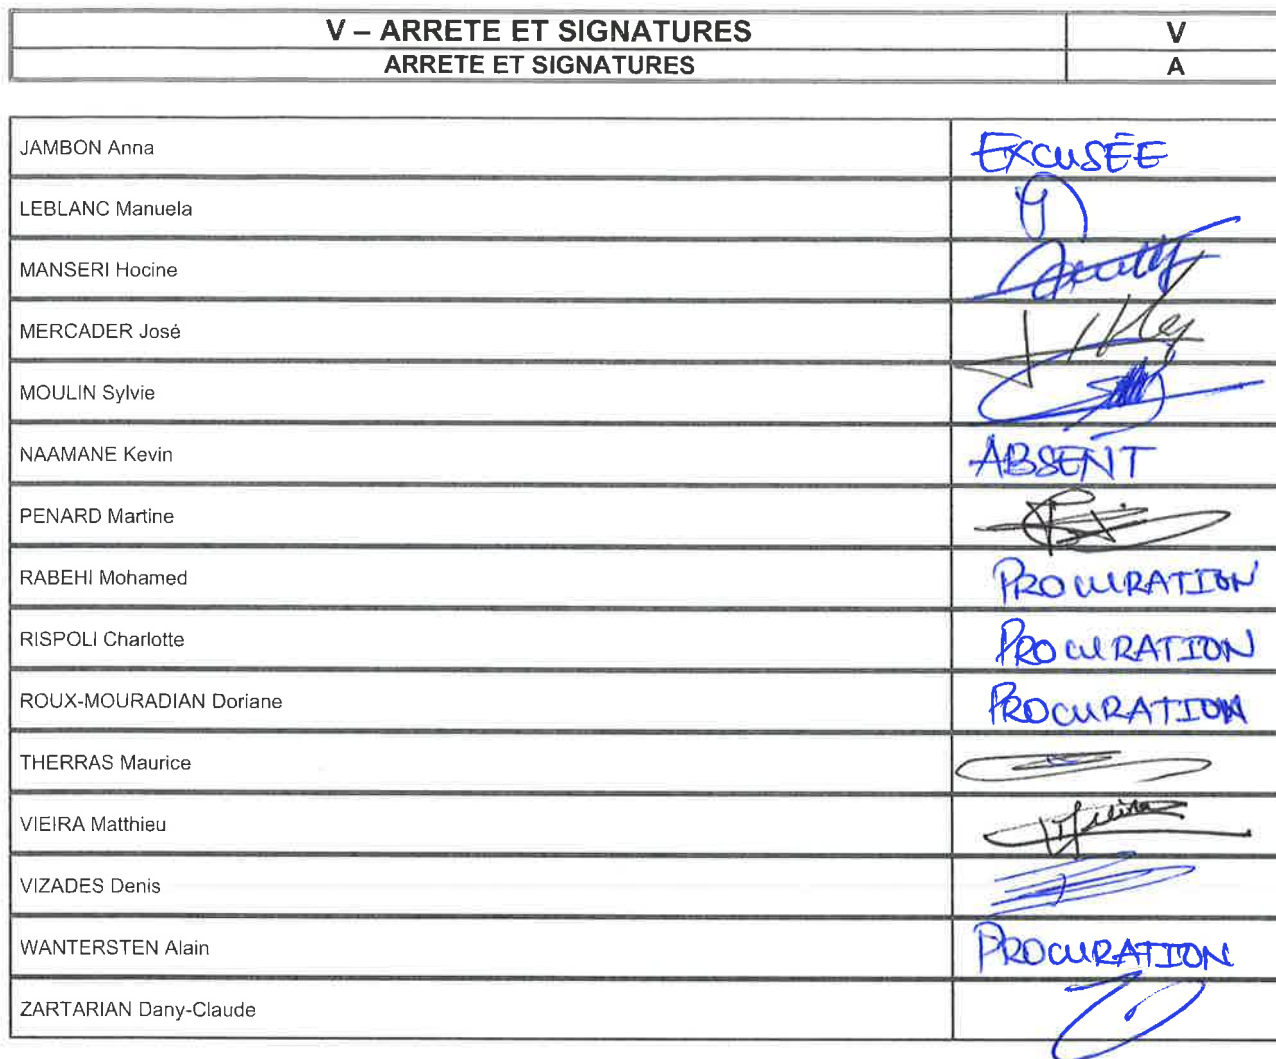 V – ARRETE ET SIGNATURES V
ARRETE ET SIGNATURES A
JAMBON Anna EXCUSÉE
LEBLANC Manuela
MANSERI Hocine
MERCADER José
MOULIN Sylvie
NAAMANE Kevin ABSENT
PENARD Martine
RABEHI Mohamed PROCURATION
RISPOLI Charlotte PROCURATION
ROUX-MOURADIAN Doriane PROCURATION
THERRAS Maurice
VIEIRA Matthieu
VIZADES Denis
WANTERSTEN Alain PROCURATION
ZARTARIAN Dany-Claude